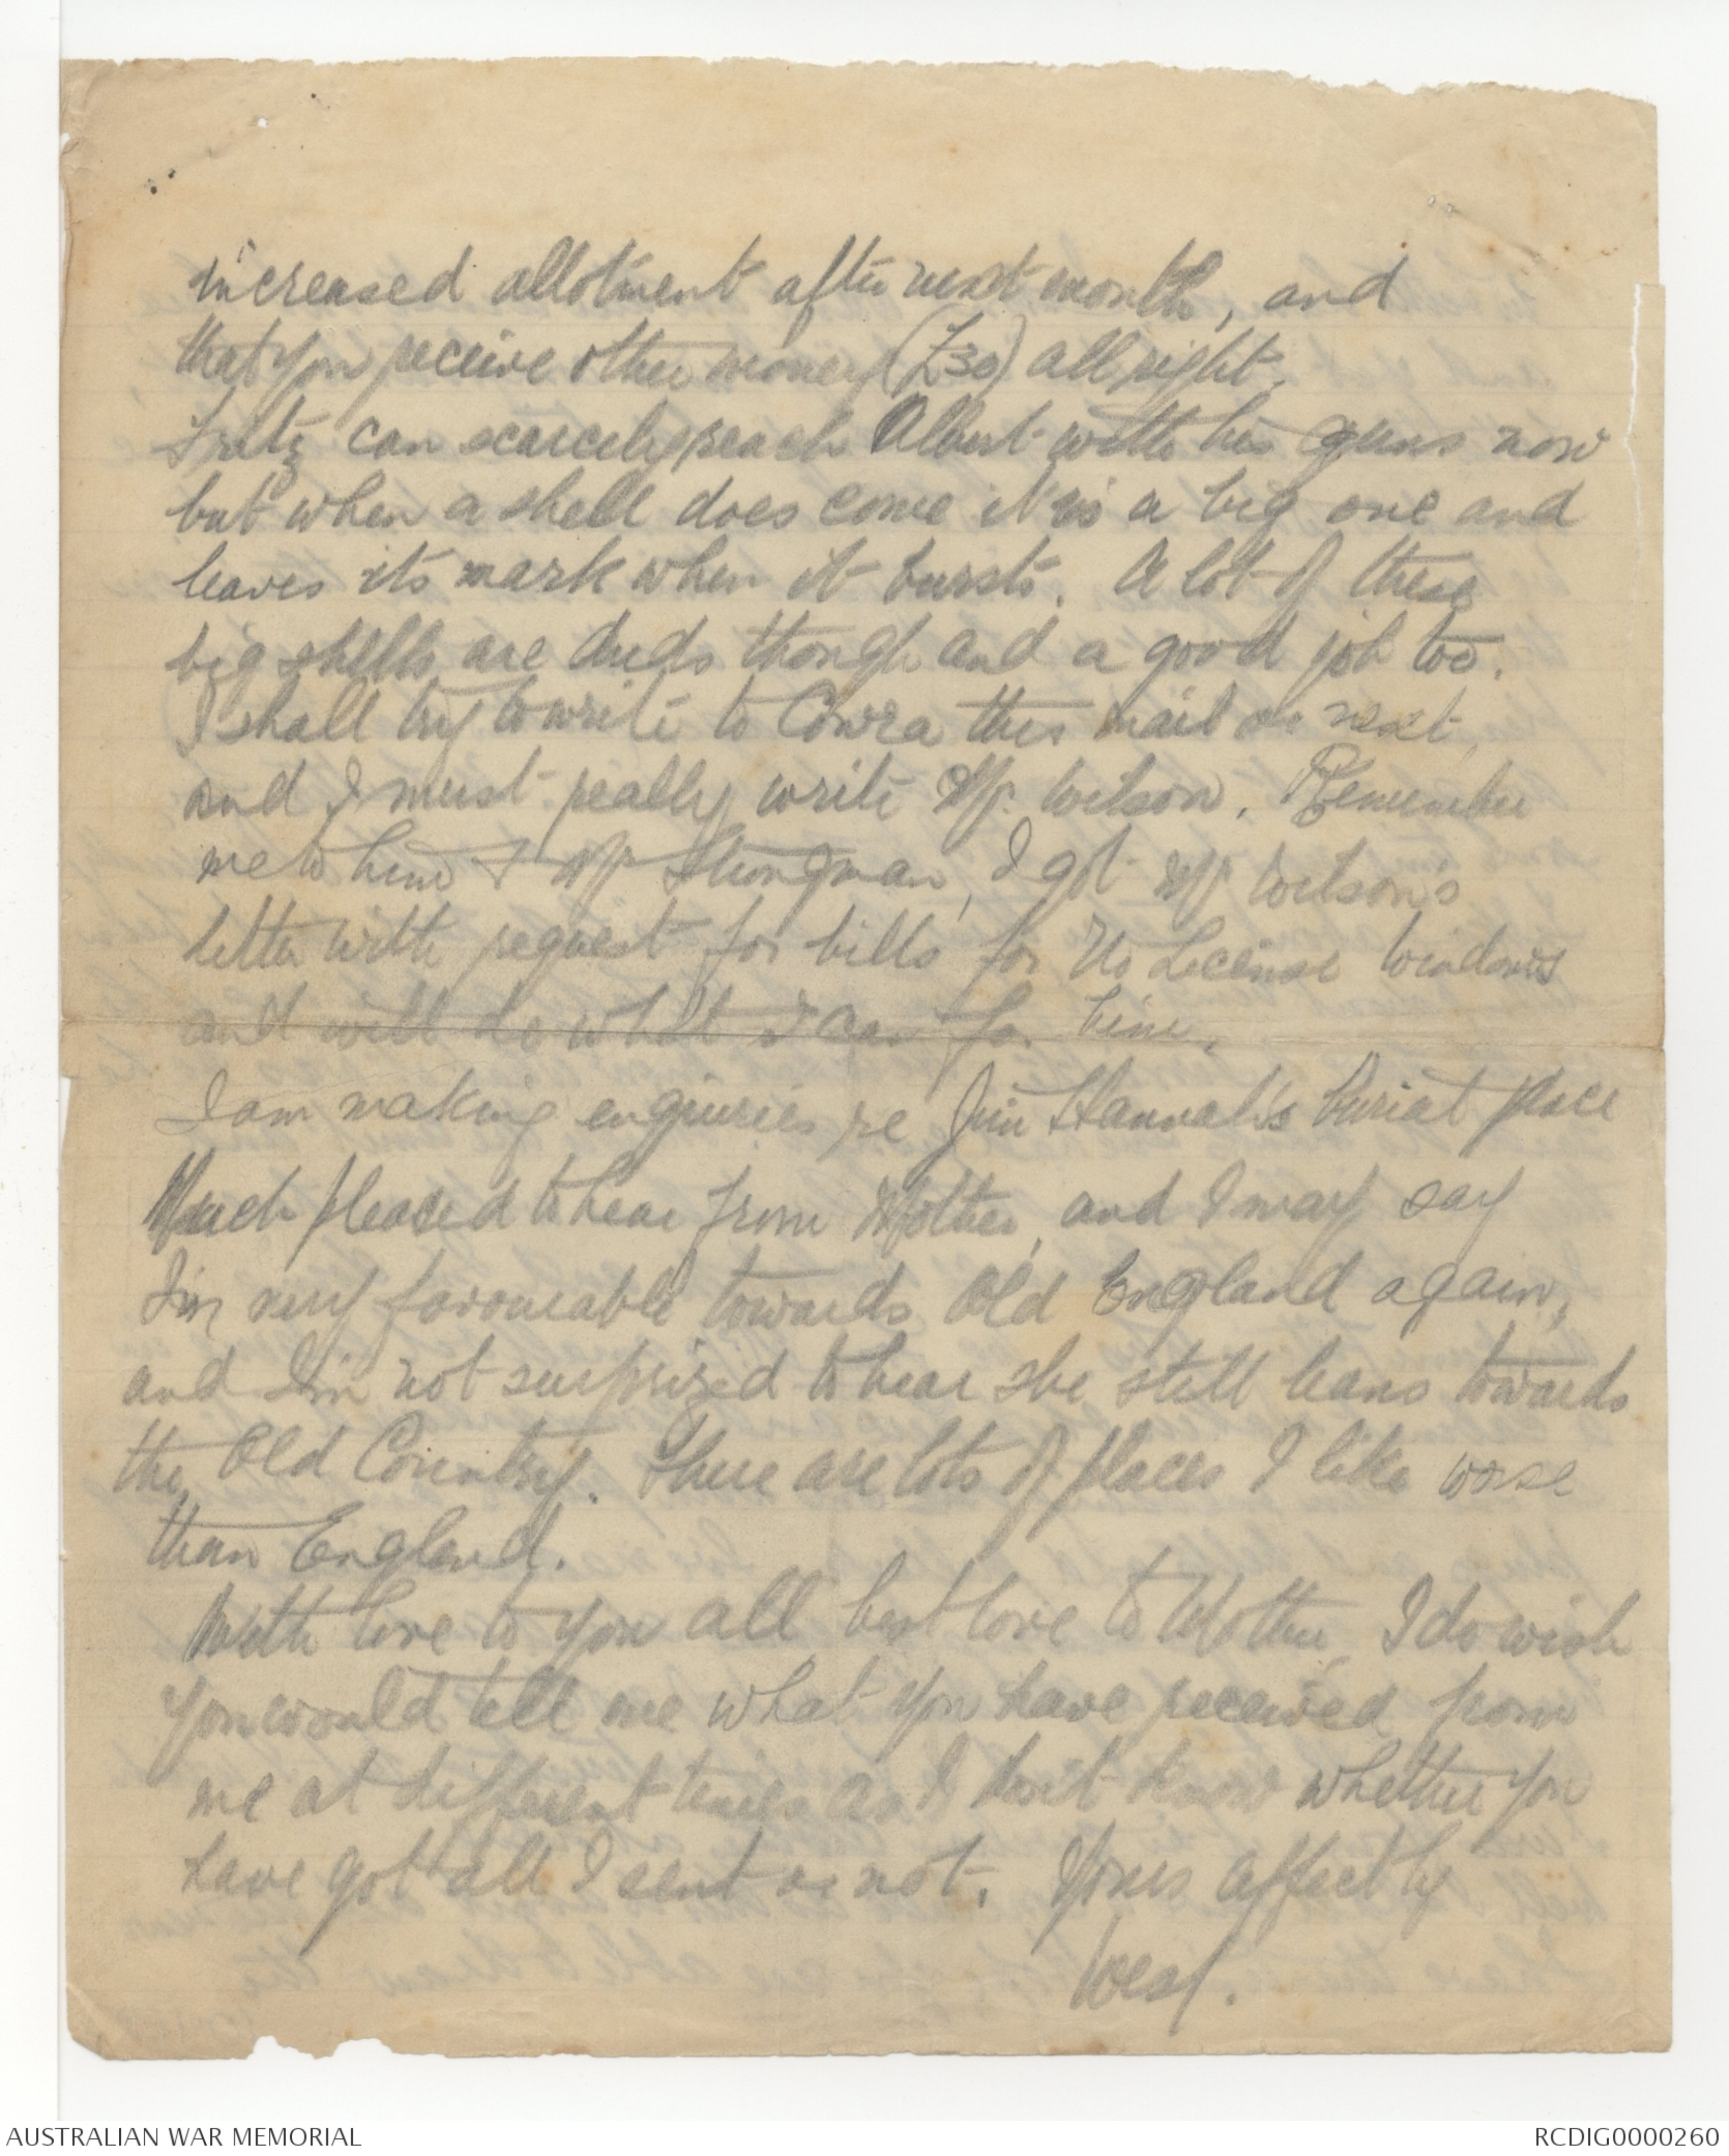 increased allotment after next month, and
that you receive other money (£30) all right.
Fritz can scarcely reach Albert with his guns now
but when a shell does come it is a big one and
leaves its mark when it bursts. A lot of these
big shells are duds though and a good job too.
I shall try to write to Cowra this mail or next,
and I must really write Mr. Wilson. Remember
me to him & Mr Strongman, I got Mr Wilson's
letter with request for bills for No License Windows
and will do what I can for him.
I am making enquiries re Jim Hannah's burial place
Much pleased to hear from Mother, and I may say
I'm very favourable towards Old England again,
and I'm not surprized to hear she still leans towards
the Old Country. There are lots of places I like worse
than England.
With love to you all best love to Mother, I do wish
you would tell me what you have received from
me at different times as I don't know whether you
have got all I sent or not. Yours affectly
Wesl.
AUSTRALIAN WAR MEMORIAL
RCDIG0000260